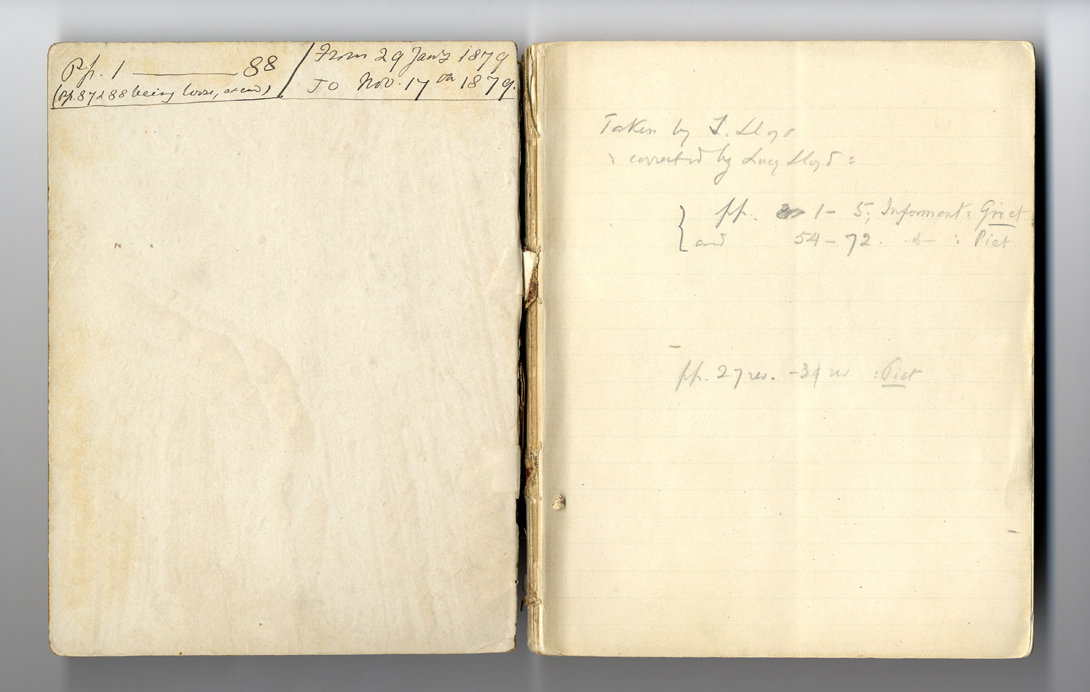 Pp. 1 ——— 88
(Pp. 87 & 88 being loose, )
From 29 Jany 1879
To Nov. 17th 1879.
Taken by Lloyd
corrected by Lucy Lloyd:
pp. 1 - 5; Informant: Griet
and 54 - 72. : Piet
pp. 27 rev. - 39 rev : Piet